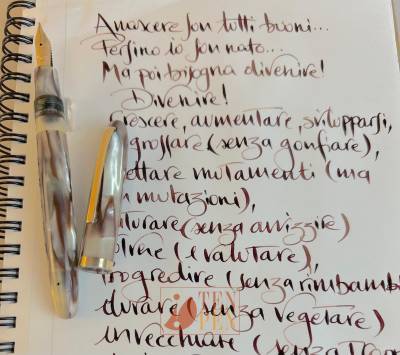 A nascere son tutti buoni...
Persino io son nato...
Ma poi bisogna divenire!
Divenire!
crescere, aumentare, svilupparsi,
grossare (senza gonfiare),
ettare mutamenti (ma
mutazioni),
aturare (senza avvizzire)
olvere (e valutare),
rogredire (senza rimbamb
durare senza vegetare)
invecchiare (senza
TEN
PEN